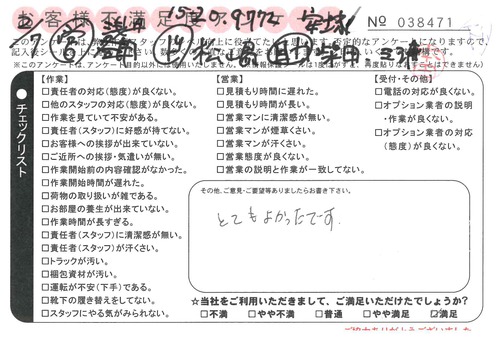 お客様不満足度
No 038471
※このアンケートは、アンケート目的以外には使用いたしません。
チェックリスト
【作業】
□責任者の対応(態度)が良くない。
□他のスタッフの対応(態度)が良くない。
□作業を見ていて不安がある。
□責任者(スタッフ)に好感が持てない。
□お客様への挨拶が出来ていない。
□ご近所への挨拶・気遣いが無い。
□作業開始前の内容確認がなかった。
□作業開始時間が遅れた。
□荷物の取り扱いが雑である。
□お部屋の養生が出来ていない。
□作業時間が長すぎる。
□責任者(スタッフ)に清潔感が無い。
□責任者(スタッフ)が汗くさい。
□トラックが汚い。
□梱包資材が汚い。
□運転が不安(下手)である。
□靴下の履き替えをしてない。
□スタッフにやる気がみられない。
【営業】
□見積もり時間に遅れた。
□見積もり時間が長い。
□営業マンに清潔感が無い。
□営業マンが煙草くさい。
□営業マンが汗くさい。
□営業態度が良くない。
□営業の説明と作業が一致してない。
【受付・その他】
□電話の対応が良くない。
□オプション業者の説明
・作業が良くない。
□オプション業者の対応
(態度)が良くない。
その他、ご意見・ご要望等ありましたらお書き下さい。
とてもよかったです.
☆当社をご利用いただきまして、ご満足いただけたでしょうか?
□不満 □やや不満 □普通 □やや満足 ☑満足
ご協力ありがとうございました